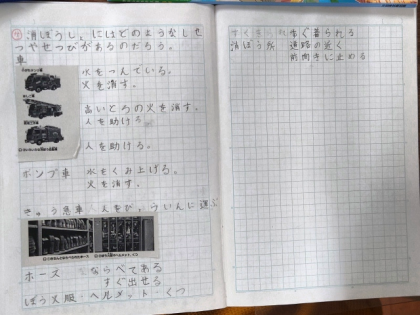 ㋐消ぼうしょにはどのようなしせ
つやせつびがあるのだろう。
車
水をつんでいる。
火を消す。
高いところの火を消す。
人を助ける。
人を助ける。
ポンプ車 水をくみ上げる。
火を消す。
きゅう急車 人をびょういんに運ぶ
ホース ならべてある
すぐ出せる
ぼう火服・ヘルメット・くつ
すぐ着られる
消ぼう所 道路の近く
前向きに止める